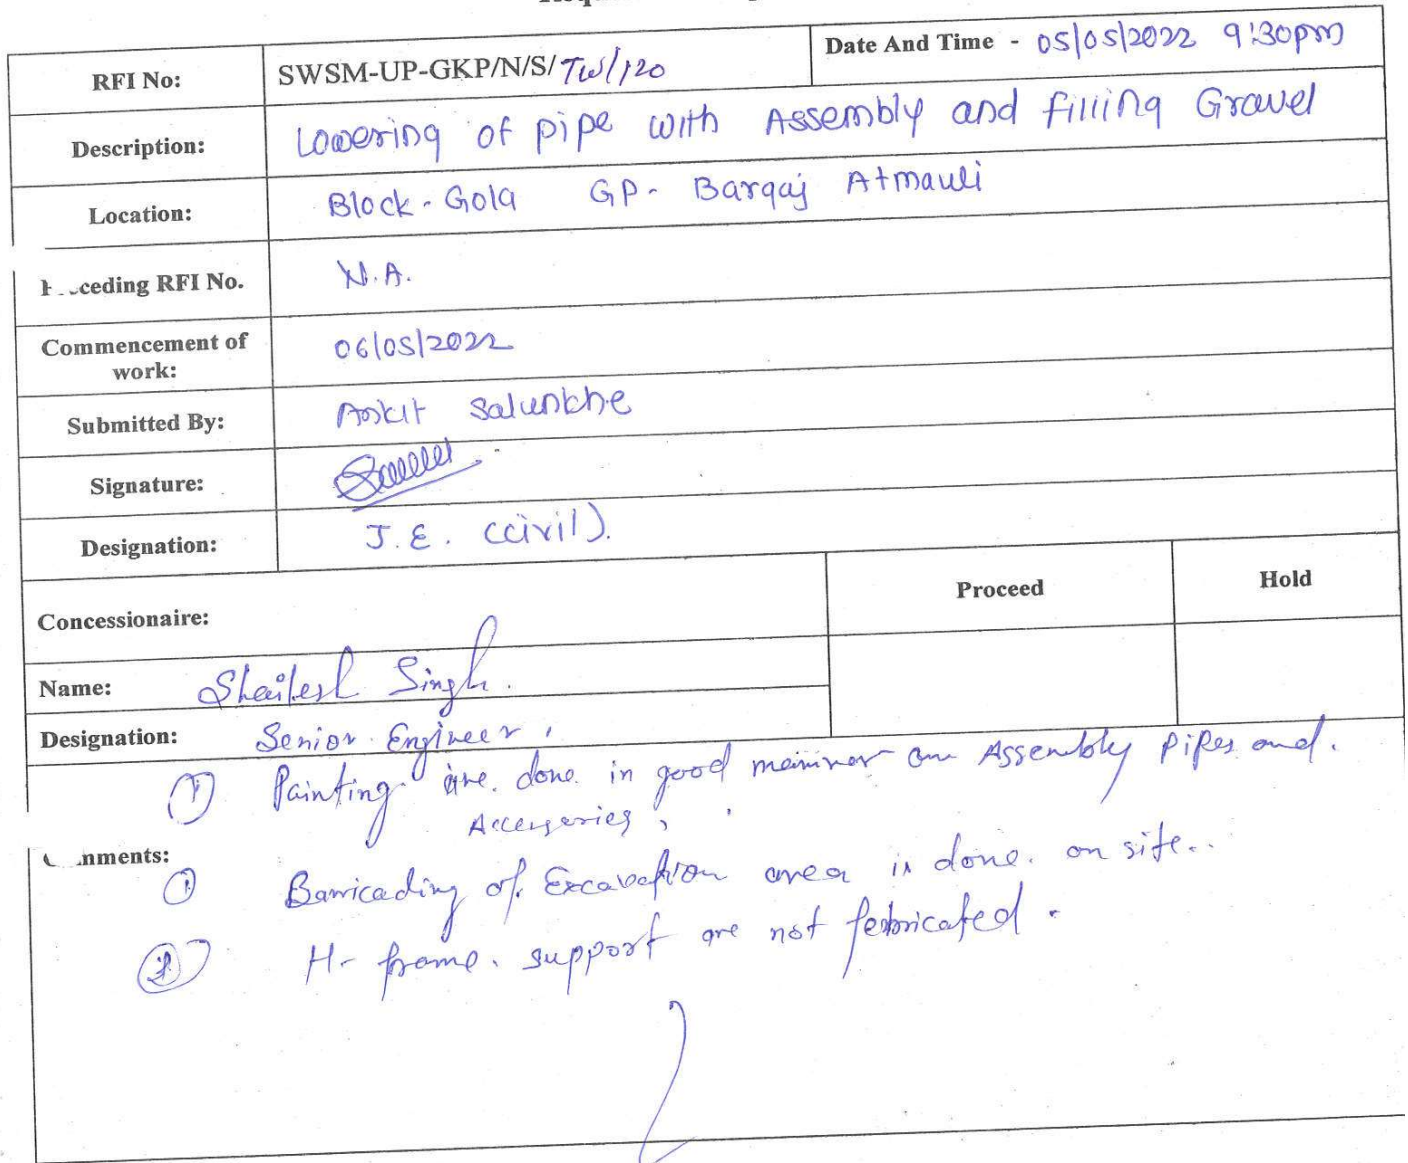 RFI No: SWSM-UP-GKP/N/S/TW/120 Date And Time - 05/05/2022 9:30pm
Description: Lowering of pipe with Assembly and filling Gravel
Location: Block-Gola GP- Bargaj Atmauli
ceding RFI No. N.A.
Commencement of
work: 06/05/2022
Submitted By: Ankit Salunkhe
Signature:
Designation: J.E. (civil).
Concessionaire: Proceed Hold
Name: Shailesh Singh.
Designation: Senior Engineer,
① Painting are done in good manner on Assembly pipes and.
Accessories,
nments:
① Barricading of Excavation area is done. on site..
② H- frame. support are not febricated.